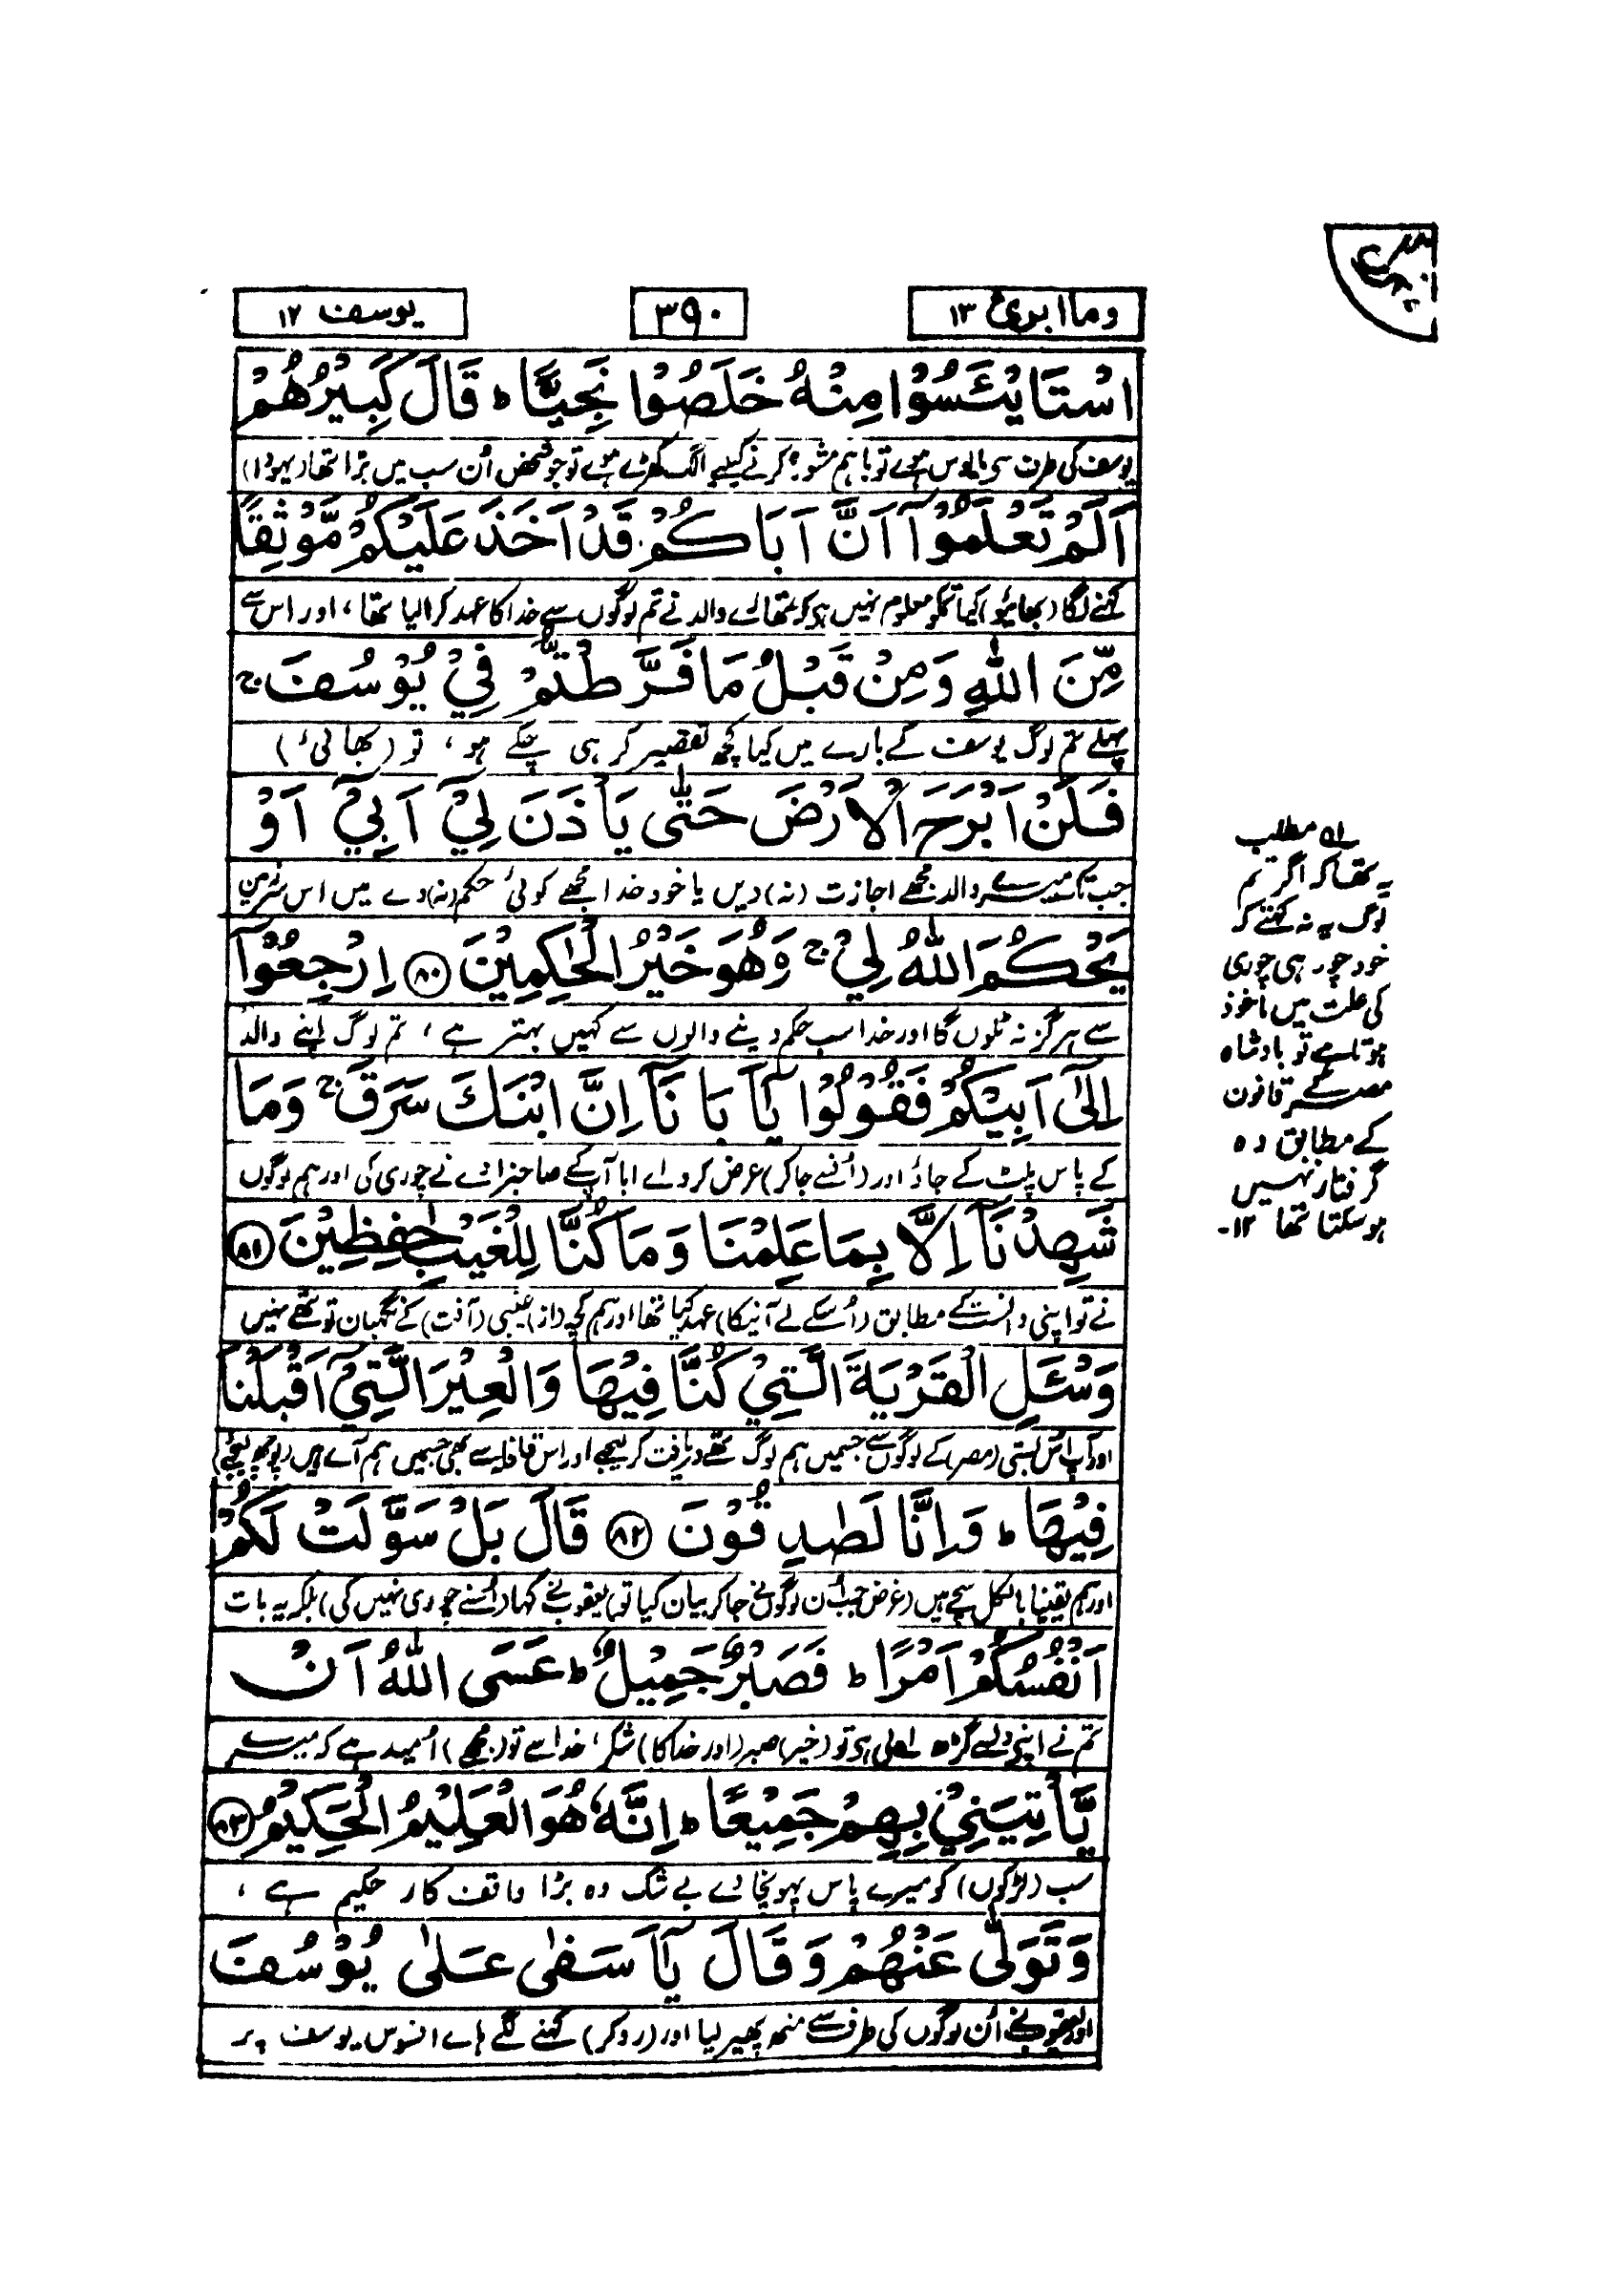 وماابرئ ۱۳
۳۹۰
یوسف ۱۲
اسْتَايْئَسُوْا مِنْهُ خَلَصُوْا نَجِيًّا ؕ قَالَ كَبِيْرُهُمْ
یوسف کی طرف سی مایوس ہوے تو باہم مشورہ کرنے کیلیے الگ کھڑے ہوے تو جو شخص اُن سب میں بڑا تھا (یہودا)
اَلَمْ تَعْلَمُوْٓا اَنَّ اَبَاكُمْ قَدْ اَخَذَ عَلَيْكُمْ مَّوْثِقًا
کہنے لگا (بھائیو) کیا تمکو معلوم نہیں ہی کہ تمھارے والد نے تم لوگوں سے خدا کا عہد کرا لیا تھا، اور اس سے
مِّنَ اللّٰهِ وَمِنْ قَبْلُ مَا فَرَّطْتُمْ فِيْ يُوْسُفَ ۚ
پہلے تم لوگ یوسف کے بارے میں کیا کچھ تقصیر کر ہی چکے ہو، تو (بھائی)
فَلَنْ اَبْرَحَ الْاَرْضَ حَتّٰى يَاْذَنَ لِيْٓ اَبِيْٓ اَوْ
جب تک میرے والد مجھے اجازت (نہ) دیں یا خود خدا مجھے کوئی حکم (نہ) دے میں اس سرزمین
يَحْكُمَ اللّٰهُ لِيْ ۚ وَهُوَ خَيْرُ الْحَاكِمِيْنَ ۸۰ اِرْجِعُوْٓا
سے ہرگز نہ ٹلوں گا اور خدا سب حکم دینے والوں سے کہیں بہتر ہے، تم لوگ اپنے والد
اِلٰٓى اَبِيْكُمْ فَقُوْلُوْا يٰٓاَبَانَآ اِنَّ ابْنَكَ سَرَقَ ۚ وَمَا
کے پاس پلٹ کے جاؤ اور (اُنسے جاکر) عرض کرو اے ابا آپکے صاحبزادے نے چوری کی اور ہم لوگوں
شَهِدْنَآ اِلَّا بِمَا عَلِمْنَا وَمَا كُنَّا لِلْغَيْبِ حٰفِظِيْنَ ۸۱
نے تو اپنی دانست کے مطابق (اُسکے لے آنیکا) عہد کیا تھا اور ہم کچھ (از) غیبی (آفت) کے نگہبان تو تھے نہیں
وَسْـَٔلِ الْقَرْيَةَ الَّتِيْ كُنَّا فِيْهَا وَالْعِيْرَ الَّتِيْٓ اَقْبَلْنَا
اور آپ اُس بستی (مصر) کے لوگوں سے جسمیں ہم لوگ تھے دریافت کر لیجیے اور اس قافلہ سے بھی جسمیں ہم آے ہیں (پوچھ لیجئے)
فِيْهَا ؕ وَاِنَّا لَصٰدِقُوْنَ ۸۲ قَالَ بَلْ سَوَّلَتْ لَكُمْ
اور ہم یقیناً بالکل سچے ہیں (غرض جب اُن لوگوں نے جاکر بیان کیا تو) یعقوب نے کہا (اُسنے چوری نہیں کی) بلکہ یہ بات
اَنْفُسُكُمْ اَمْرًا ؕ فَصَبْرٌ جَمِيْلٌ ؕ عَسَى اللّٰهُ اَنْ
تم نے اپنے دلسے گڑھ لی ہی تو (خیر) صبر (اور خدا کا) شکر، خدا سے تو (مجھے) اُمید ہے کہ میرے
يَّاْتِيَنِيْ بِهِمْ جَمِيْعًا ؕ اِنَّهٗ هُوَ الْعَلِيْمُ الْحَكِيْمُ ۸۳
سب (لڑکوں) کو میرے پاس پہونچا دے بے شک وہ بڑا واقف کار حکیم ہے،
وَتَوَلّٰى عَنْهُمْ وَقَالَ يٰٓاَسَفٰى عَلٰى يُوْسُفَ
اور یعقوب نے اُن لوگوں کی طرف سے منھ پھیر لیا اور (رو کر) کہنے لگے ہاے افسوس یوسف پر
لہ مطلب
یہ تھا کہ اگر تم
لوگ یہ نہ کہتے کہ
خود چور ہی چوری
کی علت میں ماخوذ
ہوتا ہے تو بادشاہ
مصر کے قانون
کے مطابق وہ
گرفتار نہیں
ہو سکتا تھا ۱۲-